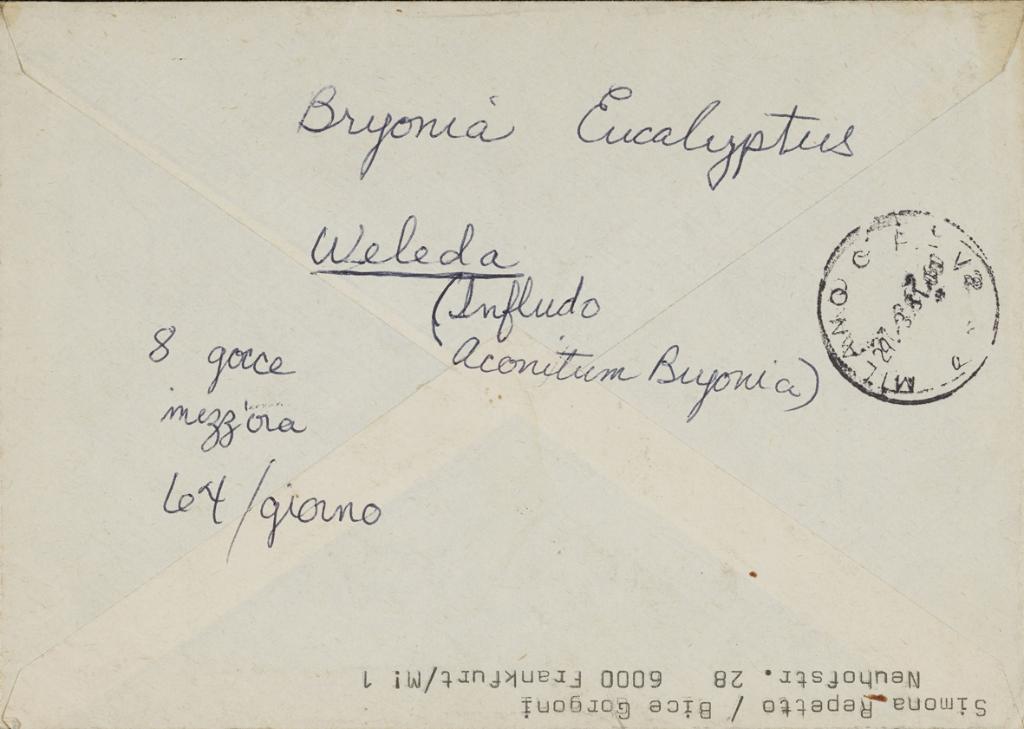 Bryonia Eucalyptus
Weleda
(Infludo
Aconitum Bryonia)
8 gocce
mezz'ora
64/giorno
MILANO
Simona Repetto / Bice Gorgoni
Neuhofstr. 28 6000 Frankfurt/M! 1